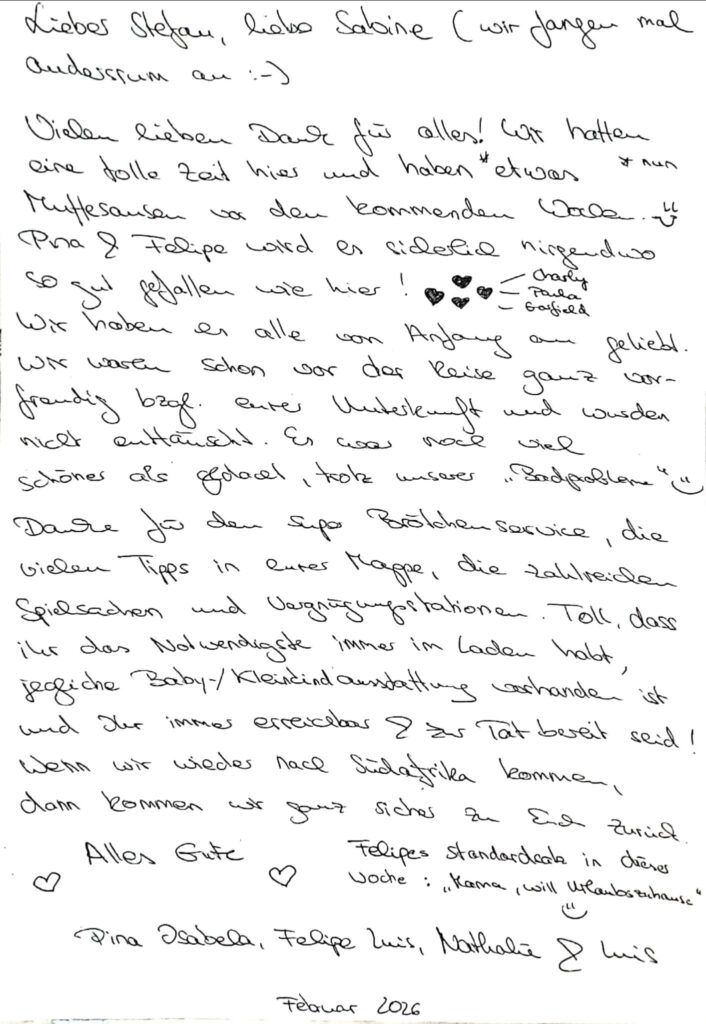 Lieber Stefan, liebe Sabine (wir fangen mal
andersrum an :-)
Vielen lieben Dank für alles! Wir hatten
eine tolle Zeit hier und haben * etwas * nun
Muffesausen vor den kommenden Wochen.
Pina & Felipe wird es sicherlich nirgendwo
so gut gefallen wie hier! ♥♥♥♥ – Charly
– Paula
– Garfield
Wir haben es alle von Anfang an geliebt.
Wir waren schon vor der Reise ganz vor-
freudig bzgl. eurer Unterkunft und wurden
nicht enttäuscht. Es war noch viel
schöner als gedacht, trotz unserer „Badprobleme“
Danke für den super Brötchenservice, die
vielen Tipps in eurer Mappe, die zahlreichen
Spielsachen und Vergnügungsstationen. Toll, dass
ihr das Notwendigste immer im Laden habt,
jegliche Baby-/Kleinkindausstattung vorhanden ist
und Ihr immer erreichbar & zur Tat bereit seid!
Wenn wir wieder nach Südafrika kommen,
dann kommen wir ganz sicher zu Euch zurück.
Alles Gute
Felipes Standardsatz in dieser
Woche: „Mama, will Urlaubszuhause“
Pina Isabela, Felipe Luis, Nathalie & Luis
Februar 2026